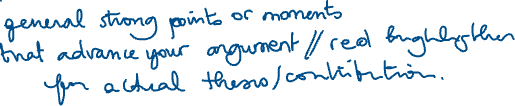 general strong points or moments
that advance your argument // red highlighter
for actual thesis/contribution.